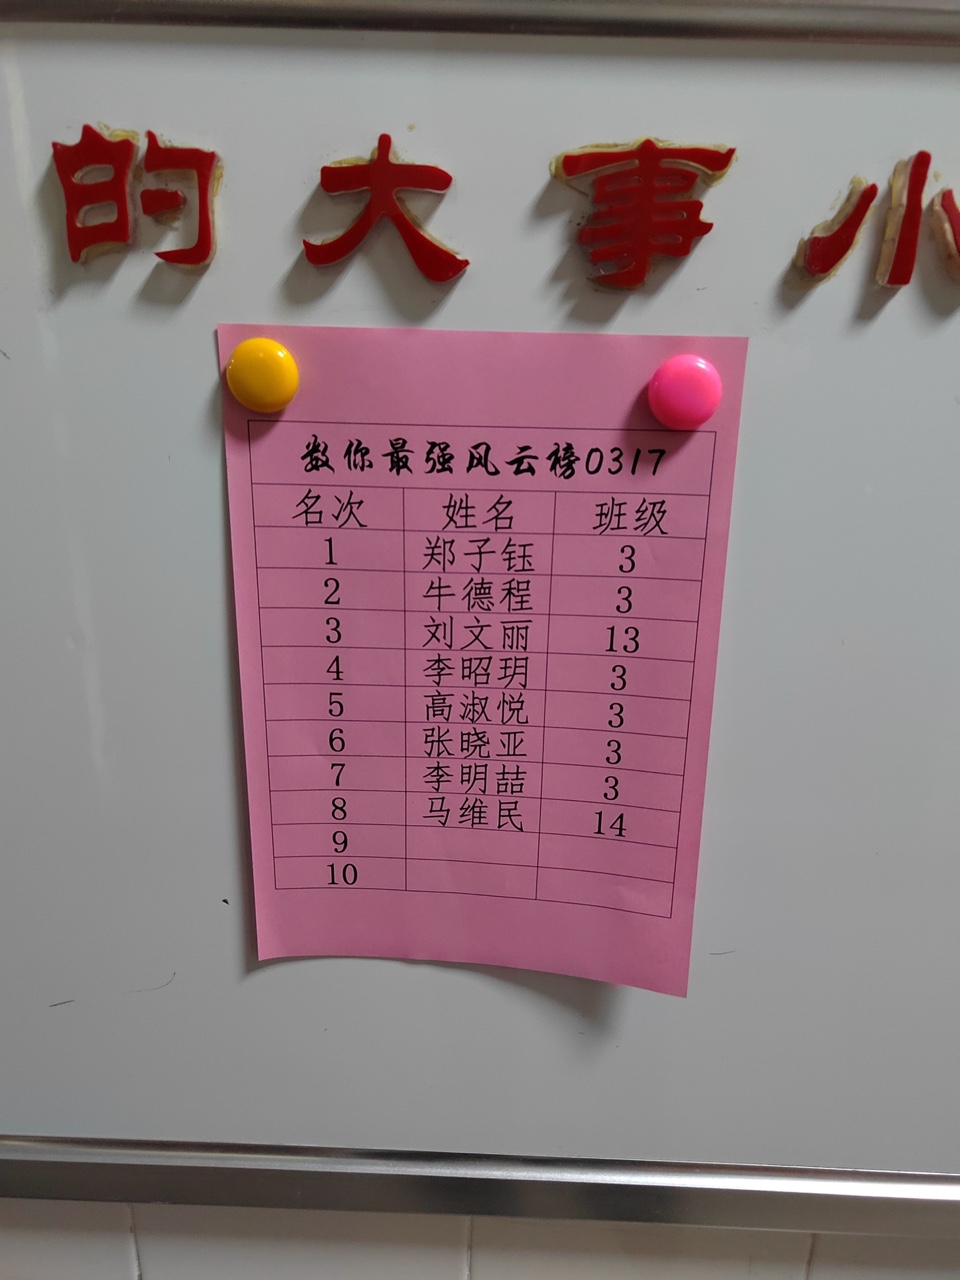 的大事小
数你最强风云榜0317
名次 姓名 班级
1 郑子钰 3
2 牛德程 3
3 刘文丽 13
4 李昭玥 3
5 高淑悦 3
6 张晓亚 3
7 李明喆 3
8 马维民 14
9
10